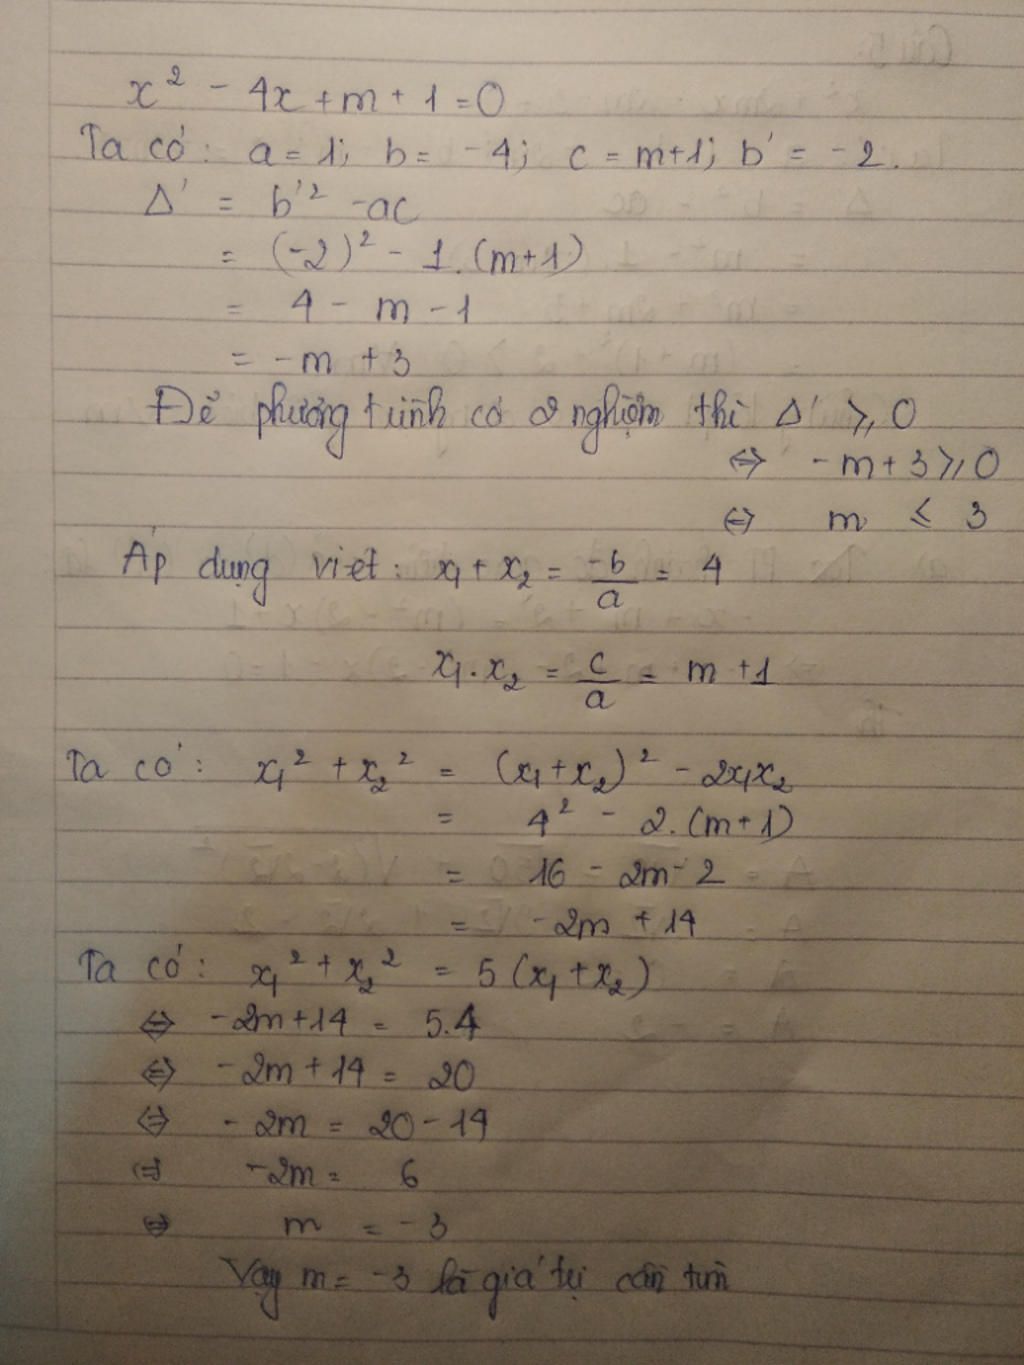 x² - 4x + m + 1 = 0
Ta có: a = 1; b = -4; c = m+1; b' = -2.
Δ' = b'² - ac
= (-2)² - 1.(m+1)
= 4 - m - 1
= -m + 3
Để phương trình có 2 nghiệm thì Δ' ≥ 0
⇔ -m + 3 ≥ 0
⇔ m ≤ 3
Áp dụng viét: x₁ + x₂ = -b/a = 4
x₁ . x₂ = c/a = m + 1
Ta có: x₁² + x₂² = (x₁ + x₂)² - 2x₁x₂
= 4² - 2.(m+1)
= 16 - 2m - 2
= -2m + 14
Ta có: x₁² + x₂² = 5(x₁ + x₂)
⇔ -2m + 14 = 5.4
⇔ -2m + 14 = 20
⇔ -2m = 20 - 14
⇔ -2m = 6
⇔ m = -3
Vậy m = -3 là giá trị cần tìm